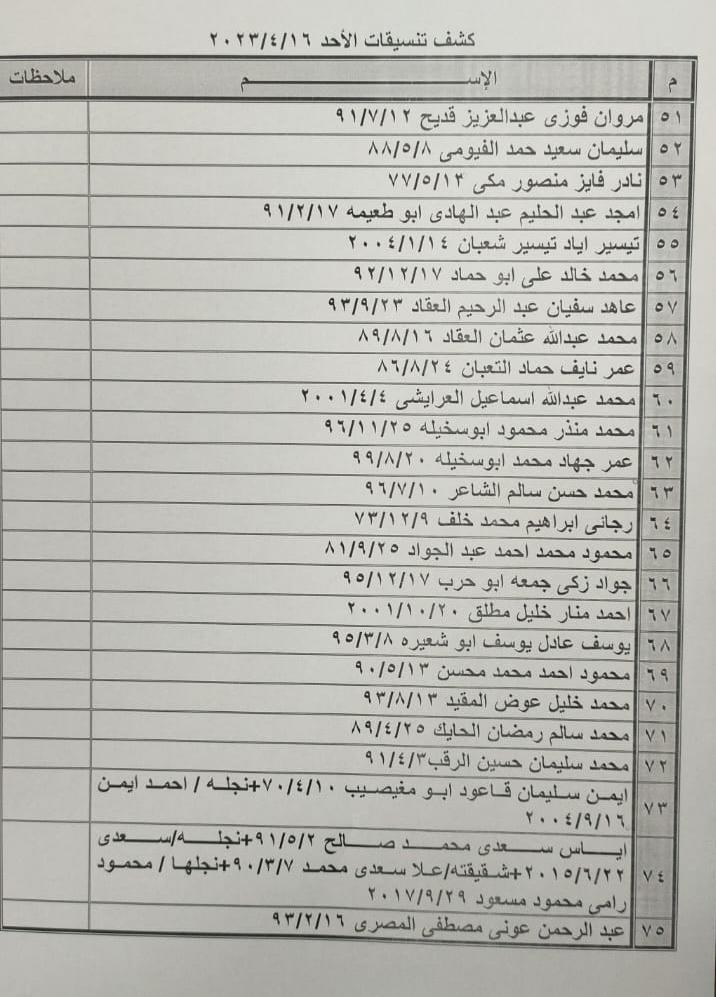 كشف تنسيقات الأحد ٢٠٢٣/٤/١٦
م الإســـــــــم ملاحظات
٥١ مروان فوزى عبدالعزيز قديح ٩١/٧/١٢
٥٢ سليمان سعيد حمد الفيومى ٨٨/٥/٨
٥٣ نادر فايز منصور مكى ٧٧/٥/١٣
٥٤ امجد عبد الحليم عبد الهادى ابو طعيمه ٩١/٢/١٧
٥٥ تيسير اياد تيسير شعبان ٢٠٠٤/١/١٤
٥٦ محمد خالد على ابو حماد ٩٢/١٢/١٧
٥٧ عاهد سفيان عبد الرحيم العقاد ٩٣/٩/٢٣
٥٨ محمد عبدالله عثمان العقاد ٨٩/٨/١٦
٥٩ عمر نايف حماد التعبان ٨٦/٨/٢٤
٦٠ محمد عبدالله اسماعيل العرايشى ٢٠٠١/٤/٤
٦١ محمد منذر محمود ابوسخيله ٩٦/١١/٢٥
٦٢ عمر جهاد محمد ابوسخيله ٩٩/٨/٢٠
٦٣ محمد حسن سالم الشاعر ٩٦/٧/١٠
٦٤ رجانى ابراهيم محمد خلف ٧٣/١٢/٩
٦٥ محمود محمد احمد عبد الجواد ٨١/٩/٢٥
٦٦ جواد زكى جمعه ابو حرب ٩٥/١٢/١٧
٦٧ احمد منار خليل مطلق ٢٠٠١/١٠/٢٠
٦٨ يوسف عادل يوسف ابو شعيره ٩٥/٣/٨
٦٩ محمود احمد محمد محسن ٩٠/٥/١٣
٧٠ محمد خليل عوض المقيد ٩٣/٨/١٣
٧١ محمد سالم رمضان الحايك ٨٩/٤/٢٥
٧٢ محمد سليمان حسين الرقب٩١/٤/٣
٧٣ ايمن سليمان قاعود ابو مغيصيب ٧٠/٤/١٠+نجله / احمد ايمن
٢٠٠٤/٩/١٦
٧٤ اياس سعدى محمد صالح ٩١/٥/٢+نجله/سعدى
٢٠١٥/٦/٢٢+شقيقته/علا سعدى محمد ٩٠/٣/٧+نجلها / محمود
رامى محمود مسعود ٢٠١٧/٩/٢٩
٧٥ عبد الرحمن عونى مصطفى المصرى ٩٣/٢/١٦